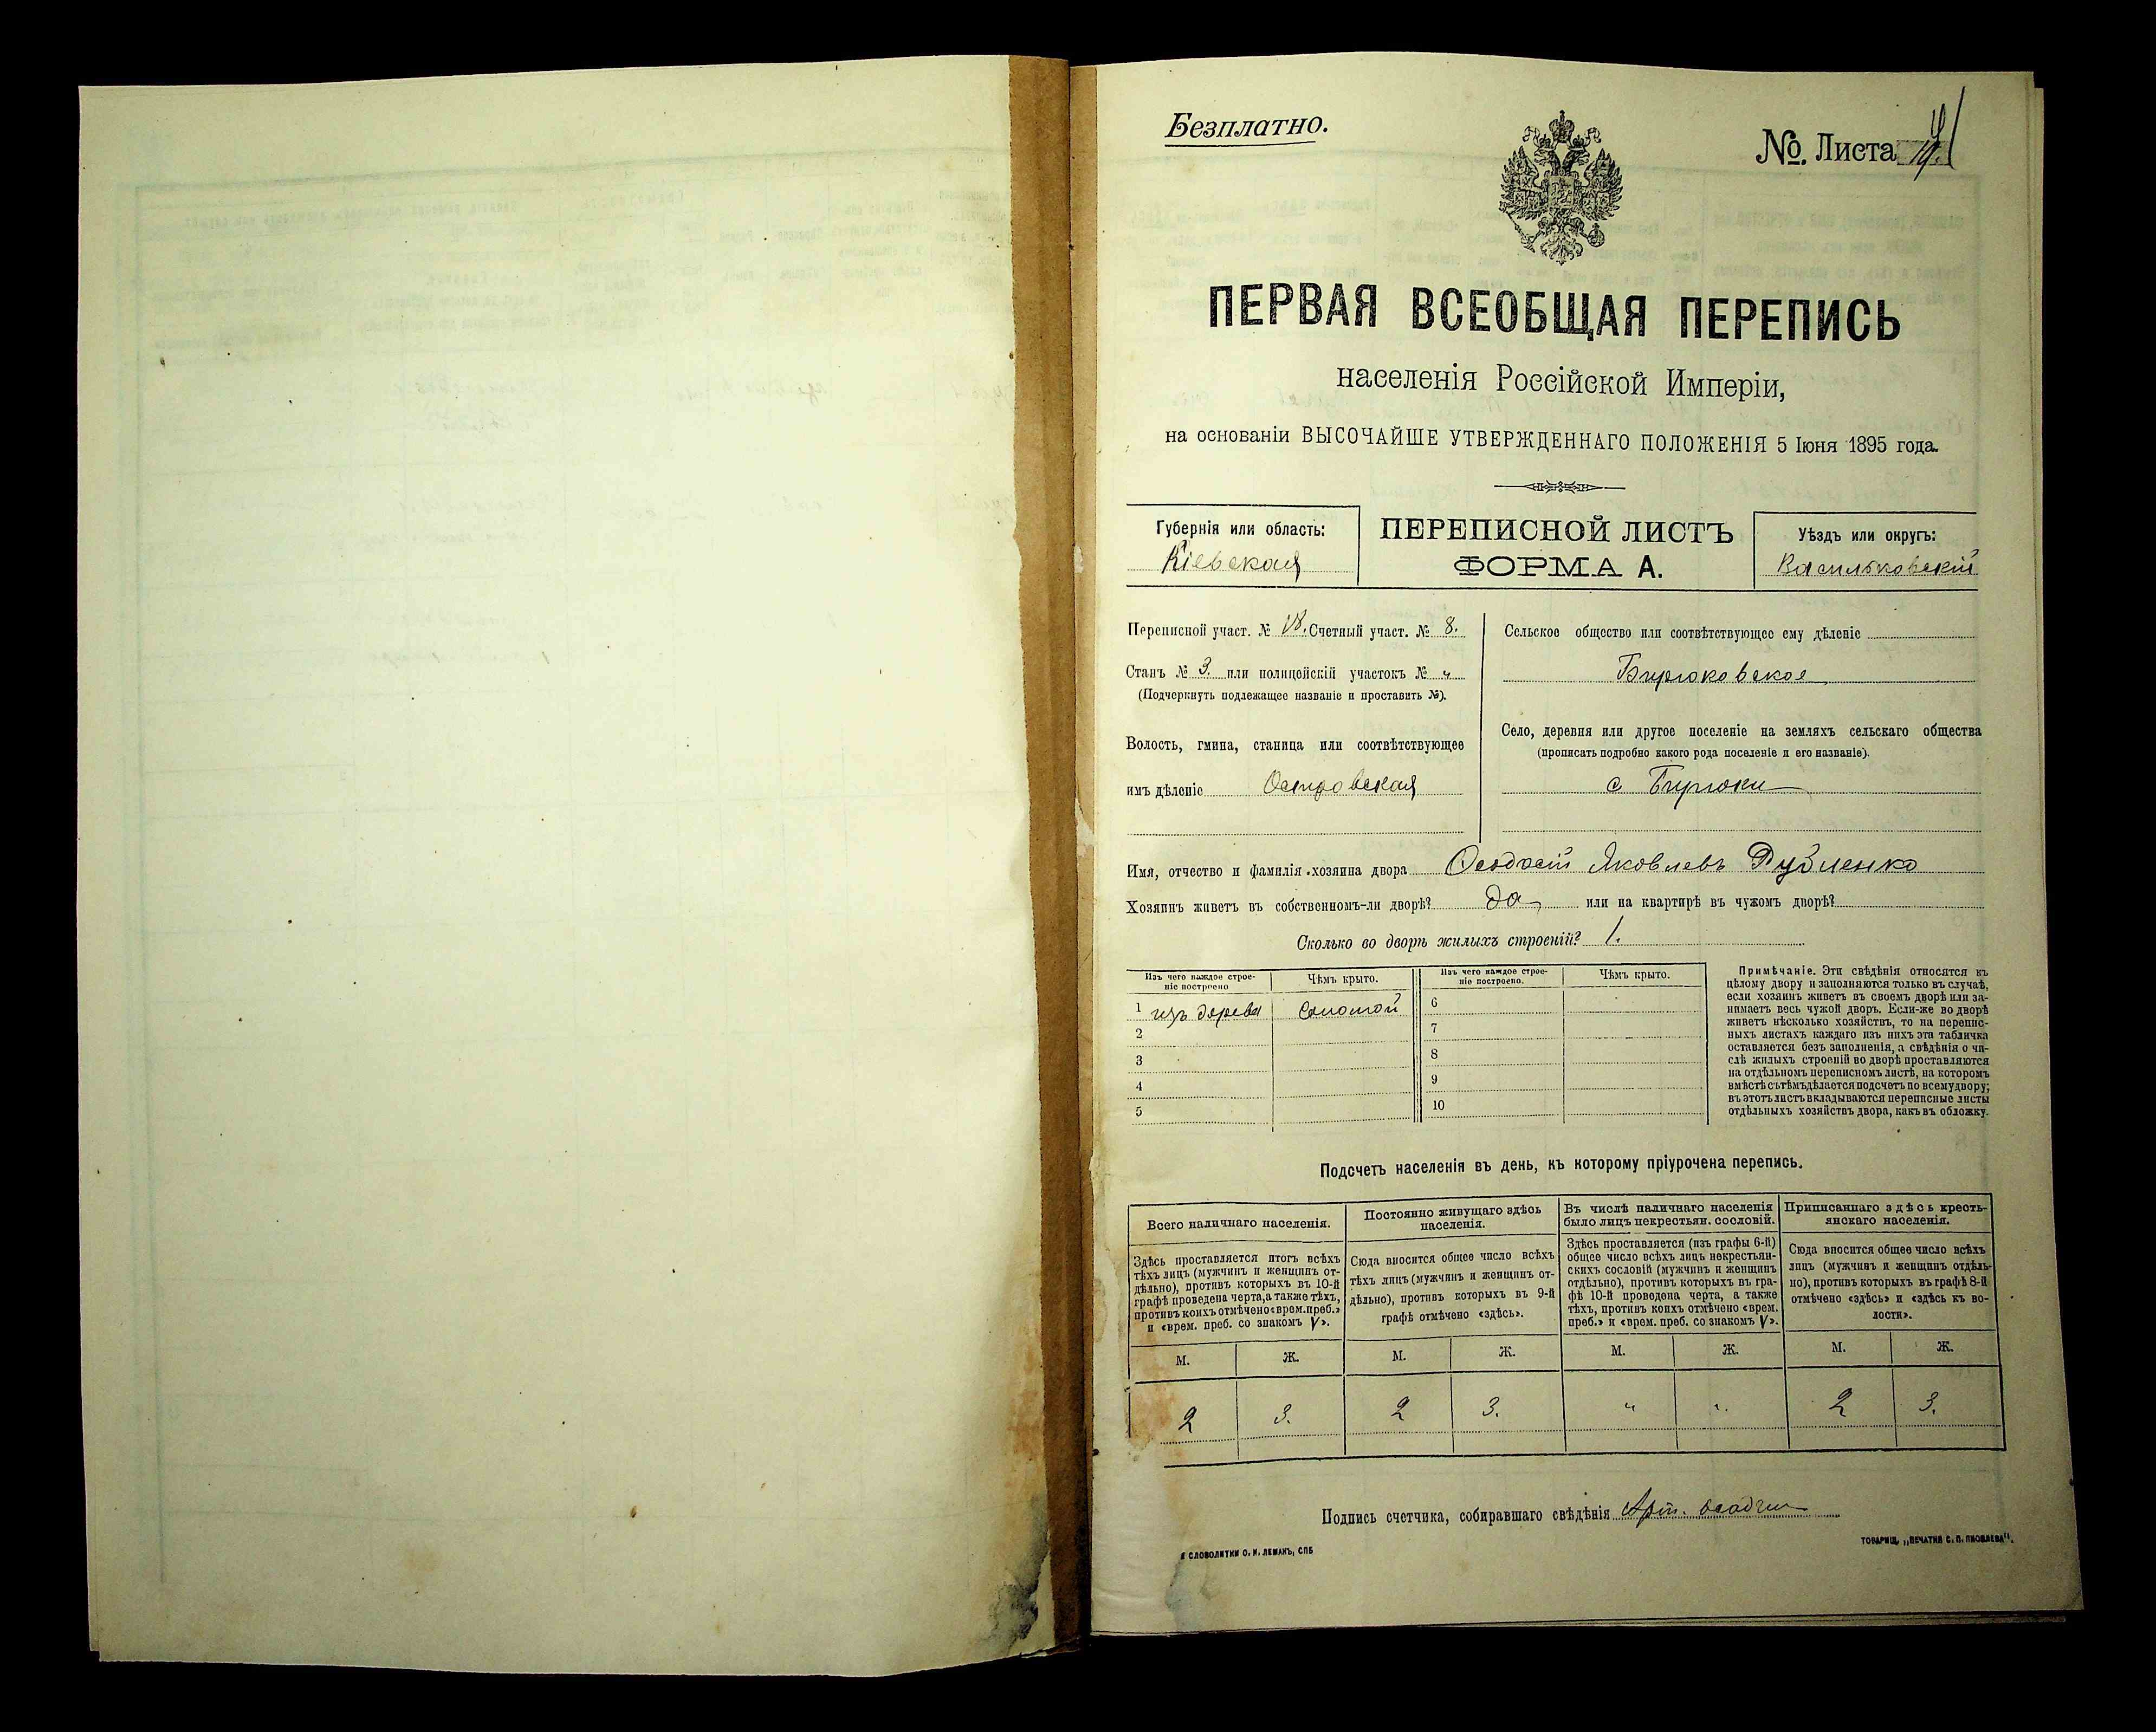 Безплатно.
№. Листа
ПЕРВАЯ ВСЕОБЩАЯ ПЕРЕПИСЬ
населенія Россійской Имперіи,
на основаніи ВЫСОЧАЙШЕ УТВЕРЖДЕННАГО ПОЛОЖЕНІЯ 5 Іюня 1895 года.
Губернія или область:
Кіевская
ПЕРЕПИСНОЙ ЛИСТЪ
ФОРМА А.
Уѣздъ или округъ:
Васильковскій
Переписной участ. № 18. Счетный участ. № 8.
Станъ № 3. или полицейскій участокъ № „
(Подчеркнуть подлежащее названіе и проставить №).
Волость, гмина, станица или соотвѣтствующее
имъ дѣленіе Островская
Сельское общество или соотвѣтствующее ему дѣленіе
Бирюковское
Село, деревня или другое поселеніе на земляхъ сельскаго общества
(прописать подробно какого рода поселеніе и его названіе).
с Бирюки
Имя, отчество и фамилія хозяина двора Феодосій Яковлевъ
Хозяинъ живетъ въ собственномъ-ли дворѣ? да или на квартирѣ въ чужомъ дворѣ?
Сколько во дворѣ жилыхъ строеній? 1.
Изъ чего каждое строе-
ніе построено
Чѣмъ крыто.
Изъ чего каждое строе-
ніе построено.
Чѣмъ крыто.
1 изъ дерева Соломой
2
3
4
5
6
7
8
9
10
Примѣчаніе. Эти свѣдѣнія относятся къ
цѣлому двору и заполняются только въ случаѣ,
если хозяинъ живетъ въ своемъ дворѣ или за-
нимаетъ весь чужой дворъ. Если-же во дворѣ
живетъ нѣсколько хозяйствъ, то на перепис-
ныхъ листахъ каждаго изъ нихъ эта табличка
оставляется безъ заполненія, а свѣдѣнія о чи-
слѣ жилыхъ строеній во дворѣ проставляются
на отдѣльномъ переписномъ листѣ, на которомъ
вмѣстѣ съ тѣмъ дѣлается подсчетъ по всему двору;
въ этотъ листъ вкладываются переписные листы
отдѣльныхъ хозяйствъ двора, какъ въ обложку.
Подсчетъ населенія въ день, къ которому пріурочена перепись.
Всего наличнаго населенія.
Здѣсь проставляется итогъ всѣхъ
тѣхъ лицъ (мужчинъ и женщинъ от-
дѣльно), противъ которыхъ въ 10-й
графѣ проведена черта, а также тѣхъ,
противъ коихъ отмѣчено «врем. преб.»
и «врем. преб. со знакомъ V».
Постоянно живущаго здѣсь
населенія.
Сюда вносится общее число всѣхъ
тѣхъ лицъ (мужчинъ и женщинъ от-
дѣльно), противъ которыхъ въ 9-й
графѣ отмѣчено «здѣсь».
Въ числѣ наличнаго населенія
было лицъ некрестьян. сословій.
Здѣсь проставляется (изъ графы 6-й)
общее число всѣхъ лицъ некрестьян-
скихъ сословій (мужчинъ и женщинъ
отдѣльно), противъ которыхъ въ гра-
фѣ 10-й проведена черта, а также
тѣхъ, противъ коихъ отмѣчено «врем.
преб.» и «врем. преб. со знакомъ V».
Приписаннаго здѣсь кресть-
янскаго населенія.
Сюда вносится общее число всѣхъ
лицъ (мужчинъ и женщинъ отдѣль-
но), противъ которыхъ въ графѣ 8-й
отмѣчено «здѣсь» и «здѣсь къ во-
лости».
М. Ж. М. Ж. М. Ж. М. Ж.
2 3. 2 3. „ „ 2 3.
Подпись счетчика, собиравшаго свѣдѣнія
СЛОВОЛИТНИ О. И. ЛЕМАНЪ, СПБ
ТОВАРИЩ. „ПЕЧАТНЯ С. П. ЯКОВЛЕВА".